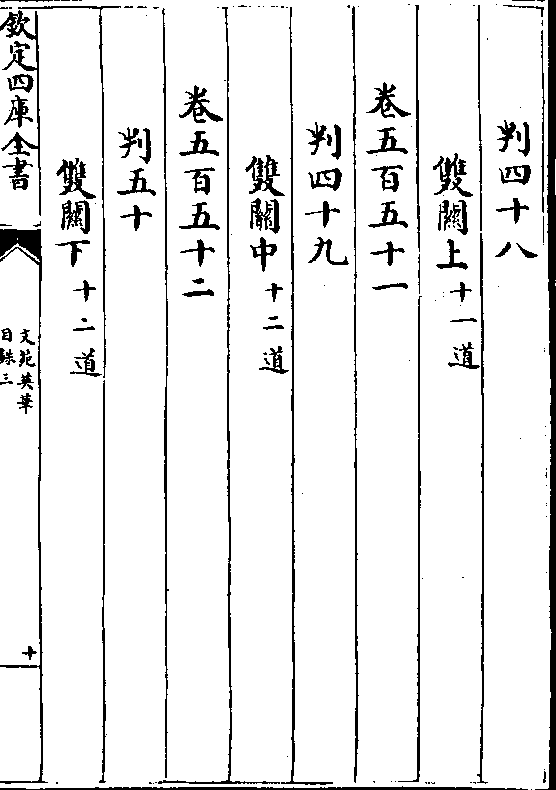 判四十八
雙關上十一道
卷五百五十一
判四十九
雙關中十二道
卷五百五十二
判五十
雙關下十二道
欽定四庫全書
文苑英華
目録三
十